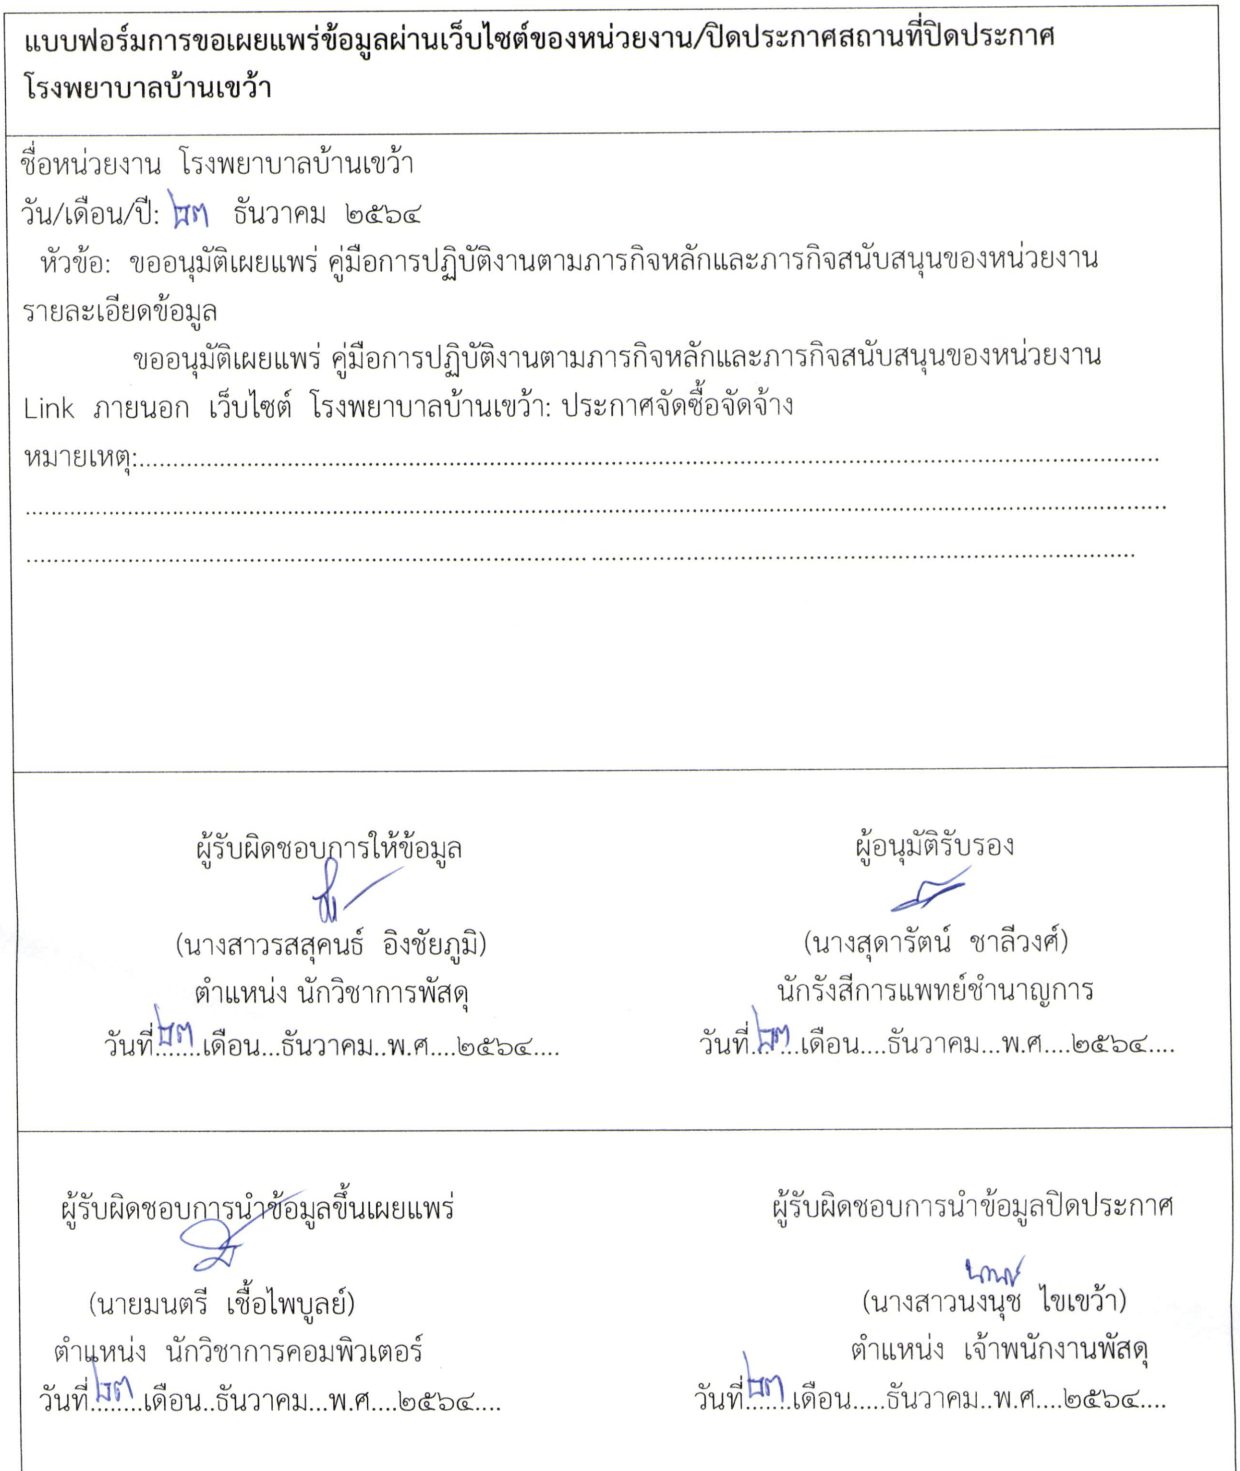 แบบฟอร์มการขอเผยแพร่ข้อมูลผ่านเว็บไซต์ของหน่วยงาน/ปิดประกาศสถานที่ปิดประกาศ
โรงพยาบาลบ้านเขว้า
ชื่อหน่วยงาน โรงพยาบาลบ้านเขว้า
วัน/เดือน/ปี: ๒๓ ธันวาคม ๒๕๖๔
หัวข้อ: ขออนุมัติเผยแพร่ คู่มือการปฏิบัติงานตามภารกิจหลักและภารกิจสนับสนุนของหน่วยงาน
รายละเอียดข้อมูล
ขออนุมัติเผยแพร่ คู่มือการปฏิบัติงานตามภารกิจหลักและภารกิจสนับสนุนของหน่วยงาน
Link ภายนอก เว็บไซต์ โรงพยาบาลบ้านเขว้า: ประกาศจัดซื้อจัดจ้าง
หมายเหตุ:
ผู้รับผิดชอบการให้ข้อมูล
(นางสาวรสสุคนธ์ อิงชัยภูมิ)
ตำแหน่ง นักวิชาการพัสดุ
วันที่..๒๓...เดือน...ธันวาคม..พ.ศ....๒๕๖๔....
ผู้อนุมัติรับรอง
(นางสุดารัตน์ ชาลีวงศ์)
นักรังสีการแพทย์ชำนาญการ
วันที่..๒๓...เดือน....ธันวาคม...พ.ศ....๒๕๖๔....
ผู้รับผิดชอบการนำข้อมูลขึ้นเผยแพร่
(นายมนตรี เชื้อไพบูลย์)
ตำแหน่ง นักวิชาการคอมพิวเตอร์
วันที่..๒๓...เดือน..ธันวาคม...พ.ศ....๒๕๖๔....
ผู้รับผิดชอบการนำข้อมูลปิดประกาศ
นงนุช
(นางสาวนงนุช ไขเขว้า)
ตำแหน่ง เจ้าพนักงานพัสดุ
วันที่..๒๓...เดือน.....ธันวาคม..พ.ศ....๒๕๖๔....